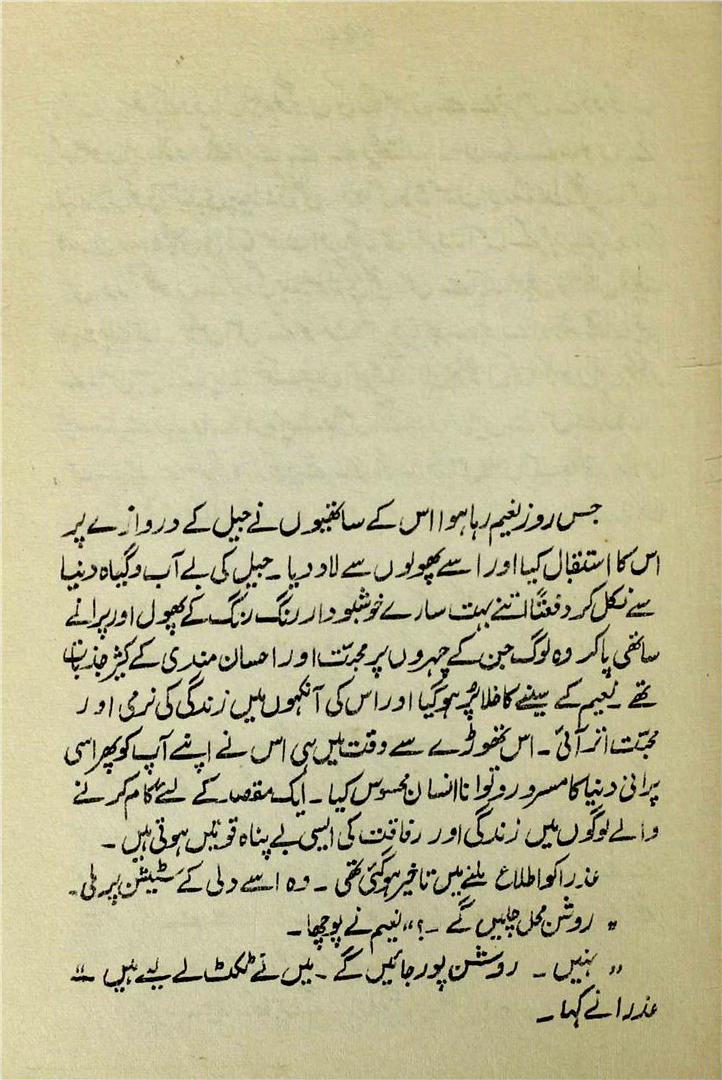 جس روز نعیم رہا ہوا اس کے ساتھیوں نے جیل کے دروازے پر
اس کا استقبال کیا اور اسے پھولوں سے لاد دیا۔ جیل کی بے آب و گیاہ دنیا
سے نکل کر دفعتاً اتنے بہت سارے خوشبودار رنگ رنگ کے پھول اور پرانے
ساتھی پا کر وہ لوگ جن کے چہروں پر محبت اور احسان مندی کے کثیر جذبات
تھے۔ نعیم کے سینے کا خلا پُر ہو گیا اور اس کی آنکھوں میں زندگی کی نرمی اور
محبت اتر آئی۔ اس تھوڑے سے وقت میں ہی اس نے اپنے آپ کو پھر اسی
پرانی دنیا کا مسرور و توانا انسان محسوس کیا۔ ایک مقصد کے لئے کام کرنے
والے لوگوں میں زندگی اور رفاقت کی ایسی بے پناہ قوتیں ہوتی ہیں۔
عذرا کو اطلاع ملنے میں تاخیر ہو گئی تھی۔ وہ اسے دلی کے سٹیشن پر ملی۔
”روشن محل چلیں گے۔؟“ نعیم نے پوچھا۔
”نہیں۔ روشن پور جائیں گے۔ میں نے ٹکٹ لے لیے ہیں۔“
عذرا نے کہا۔